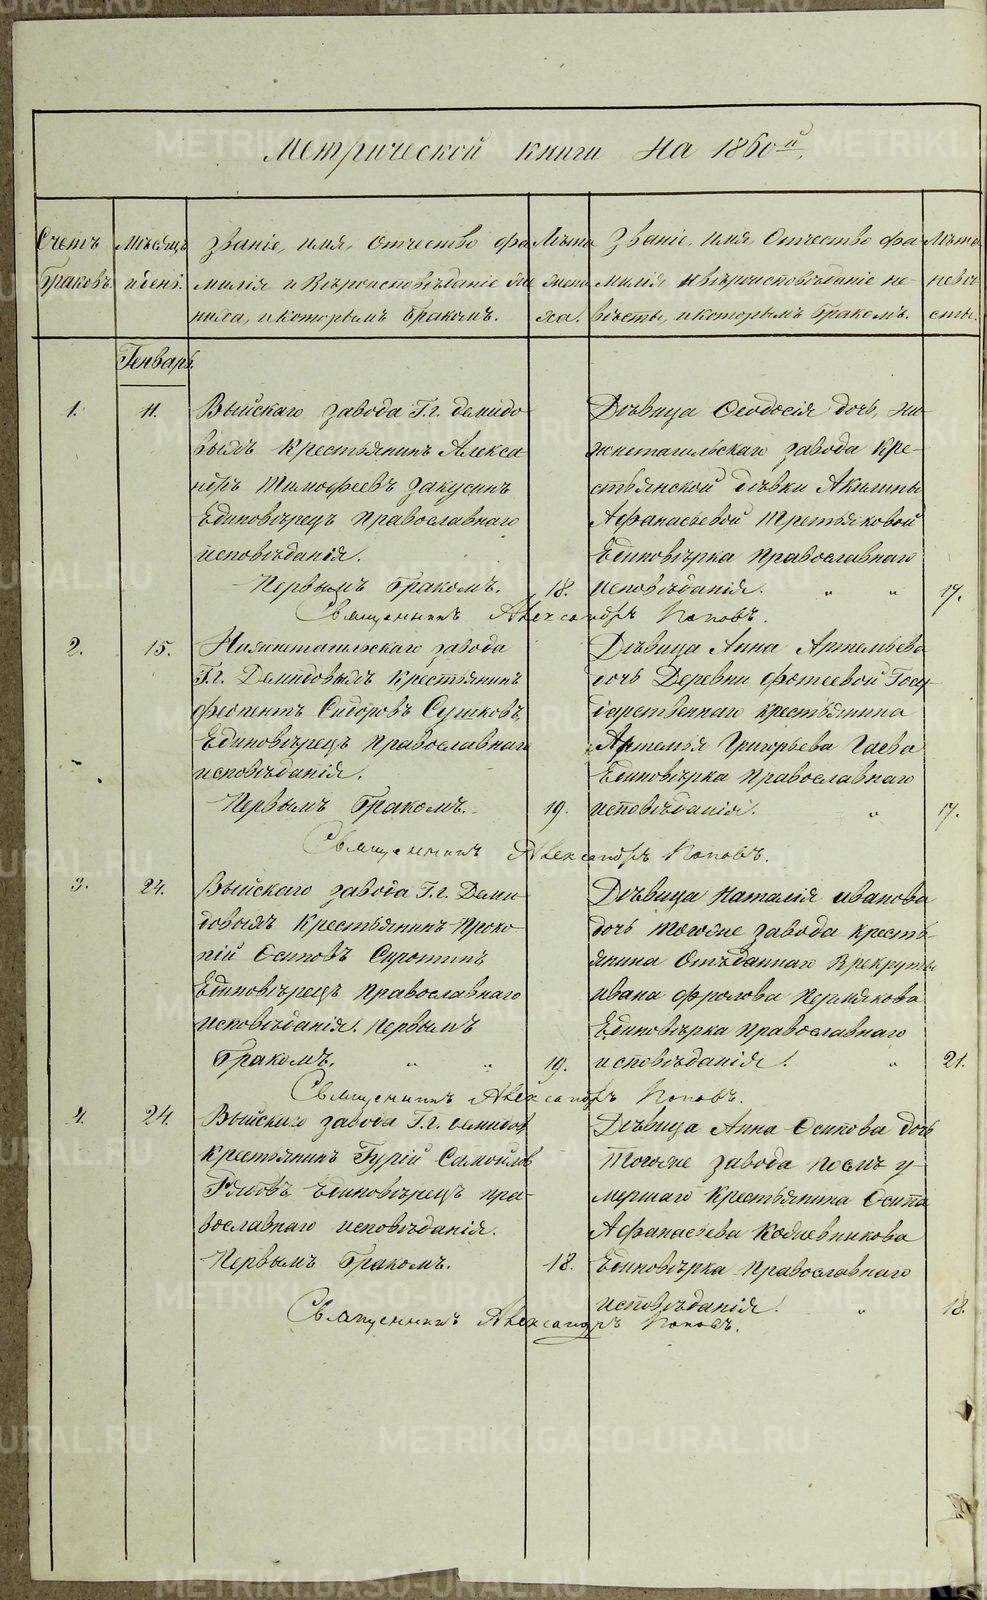 Метрической книги на 1860й.
Счетъ Браковъ.
Мѣсяцъ и день.
Званіе, имя, отчество фа-
милія и Вѣроисповѣданіе Же-
ниха, и которымъ бракомъ.
Лѣта Жениха.
Званіе, имя, Отчество фа-
милія и вѣроисповѣданіе не-
вѣсты, и которымъ бракомъ.
Лѣта невѣсты.
Генварь.
1.
11.
Выйскаго завода Г.г. Демидо-
выхъ Крестьянинъ Алекса-
ндръ Тимофеевъ Закусинъ
Единовѣрецъ Православнаго
исповѣданія.
Первымъ бракомъ. 18.
Дѣвица Ѳеодосія дочь, ни-
жнетагильскаго завода Кре-
стьянской дѣвки Акилины
Афанасьевой Третьяковой
Единовѣрка Православнаго
исповѣданія. " " 17.
Священникъ Александръ Поповъ.
2.
15.
Нижнетагильскаго завода
Г.г. Демидовыхъ крестьянинъ
Сидоровъ Сушковъ
Единовѣрецъ Православнаго
исповѣданія.
Первымъ бракомъ. 19.
Дѣвица Анна Артемьева
дочь Деревни Фотеевой Госу-
дарственнаго крестьянина
Артемья Григорьева Гаева
Единовѣрка Православнаго
исповѣданія. " 17.
Священникъ Александръ Поповъ.
3.
24.
Выйскаго завода Г.г. Деми-
довыхъ Крестьянинъ Проко-
пій Осиповъ Сиротинъ
Единовѣрецъ Православнаго
исповѣданія. Первымъ
бракомъ. " " 19.
Дѣвица Наталія иванова
дочь тогоже завода кресть-
янина Отъданнаго в рекруты
ивана Фролова Пермякова
Единовѣрка Православнаго
исповѣданія. " 21.
Священникъ Александръ Поповъ.
4.
24.
Выйскаго завода Г.г. Демидов
Крестьянинъ Гурій Самойлов
Единовѣрецъ пра-
вославнаго исповѣданія.
Первымъ бракомъ. 18.
Дѣвица Анна Осипова дочь
тогоже завода послѣ у-
мершаго Крестьянина Осипа
Афанасьева Кожевникова
Единовѣрка Православнаго
исповѣданія. " 18.
Священникъ Александръ Поповъ.
METRIKI.GASO-URAL.RU